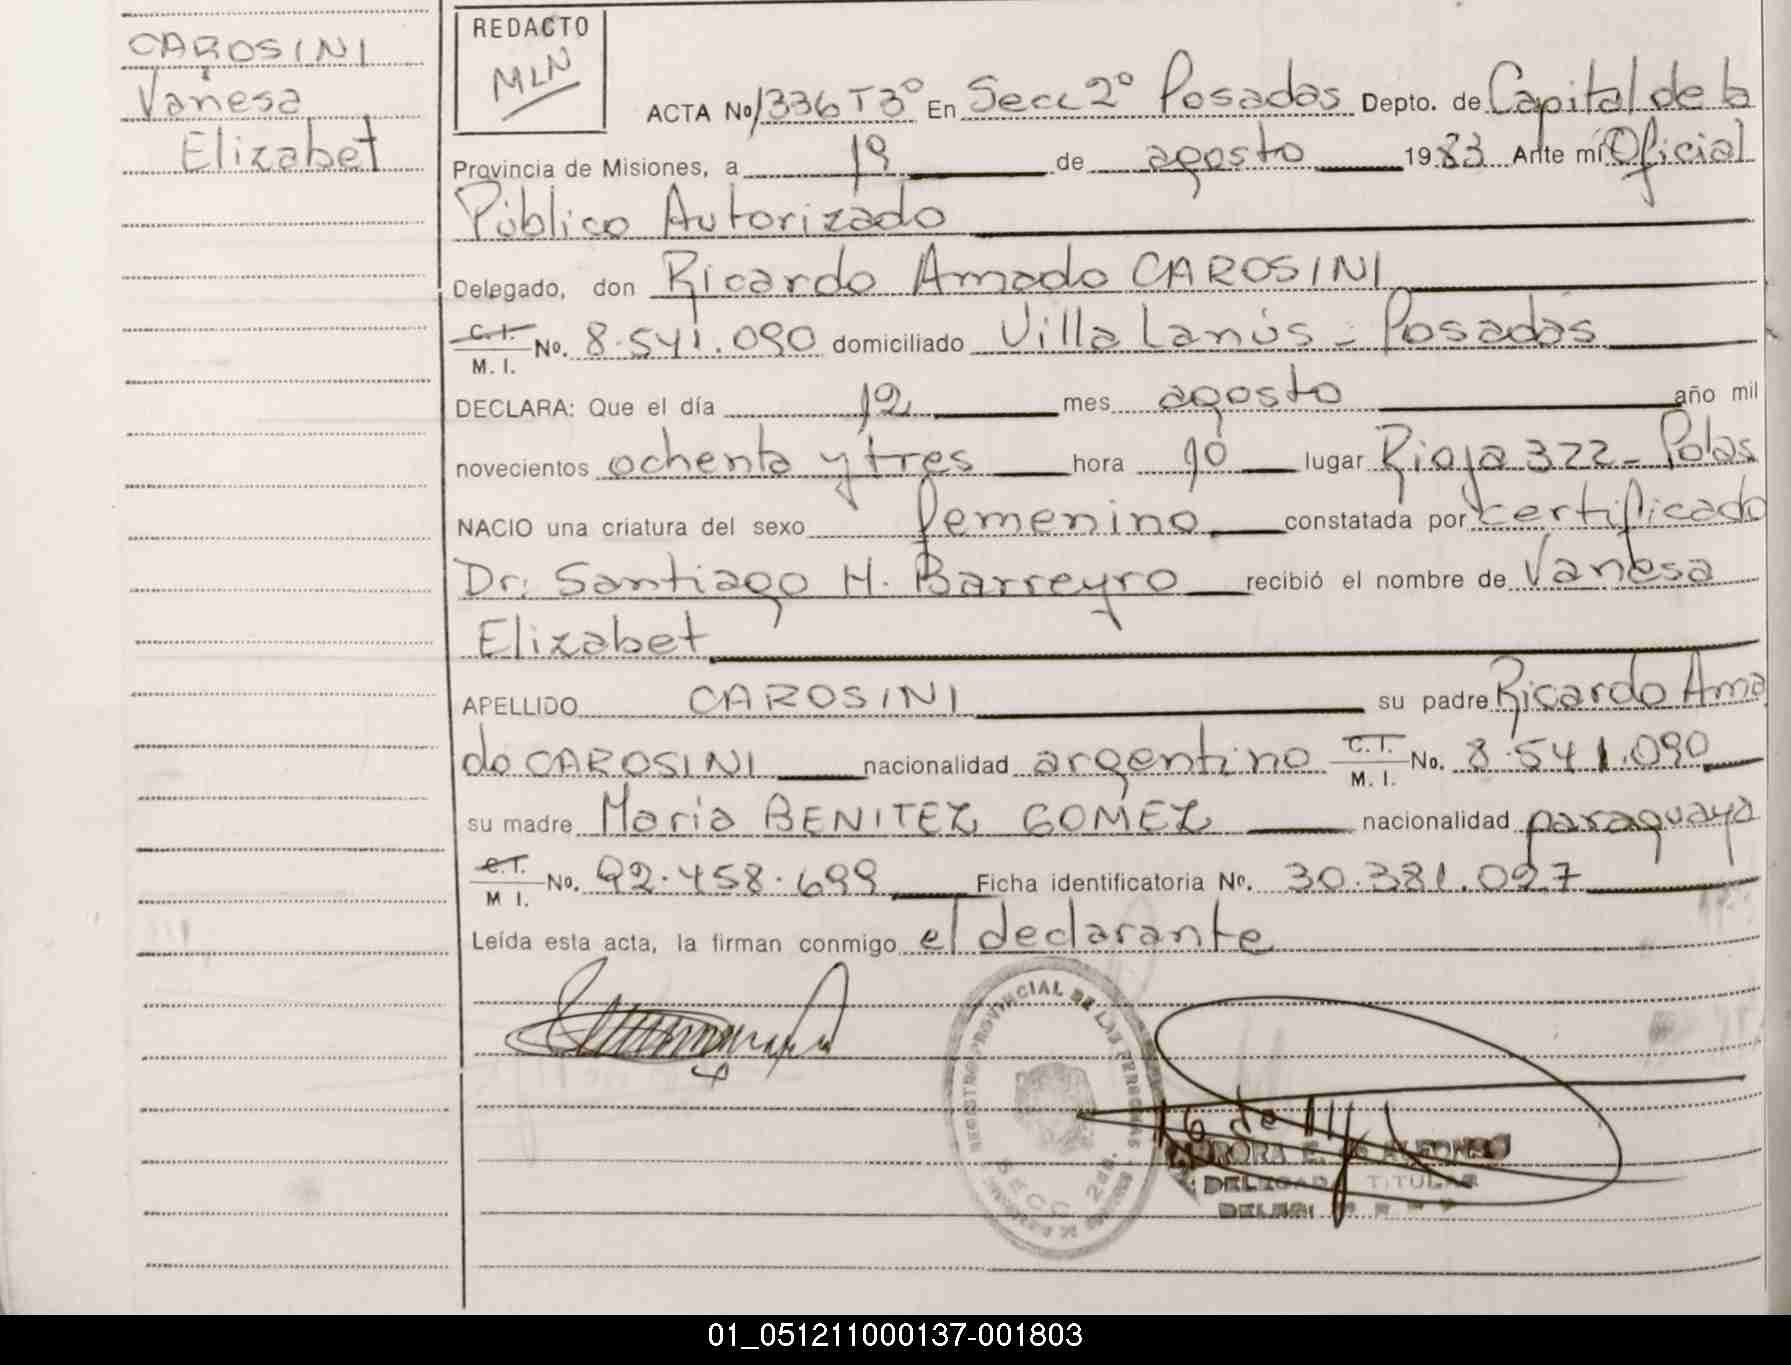 CAROSINI
Vanesa
Elizabet
REDACTO
MLN
ACTA No 1336 T 3º En Secc 2º Posadas Depto. de Capital de la
Provincia de Misiones, a 19 de agosto 1983 Ante mí Oficial
Público Autorizado
Delegado, don Ricardo Amado CAROSINI
C.I. M. I. No. 8.541.090 domiciliado Villa Lanús - Posadas
DECLARA: Que el día 12 mes agosto año mil
novecientos ochenta y tres hora 10 lugar Rioja 322 - Pdas
NACIO una criatura del sexo femenino constatada por certificado
Dr. Santiago H. Barreyro recibió el nombre de Vanesa
Elizabet
APELLIDO CAROSINI su padre Ricardo Ama
do CAROSINI nacionalidad argentino C.I. M. I. No. 8.541.090
su madre María BENITEZ GOMEZ nacionalidad paraguaya
C.I. M I. No. 92.458.699 Ficha identificatoria No. 30.381.097
Leída esta acta, la firman conmigo el declarante
REGISTRO PROVINCIAL DE LAS PERSONAS
SECC 2da.
DELEGADA TITULAR
01_051211000137-001803